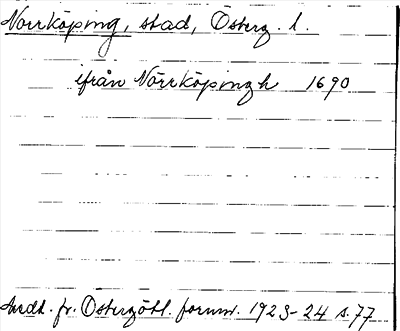 Norrköping, stad, Österg. l.
ifrån Nörrköpingh 1690
Medd. fr. Östergötl. fornm. 1923-24 s. 77